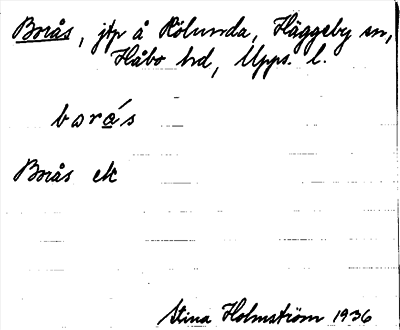 Borås, jtp å Rölunda, Häggeby sn,
Håbo hd, Upps. l.
borá̱s
Borås ek
Stina Holmström 1936